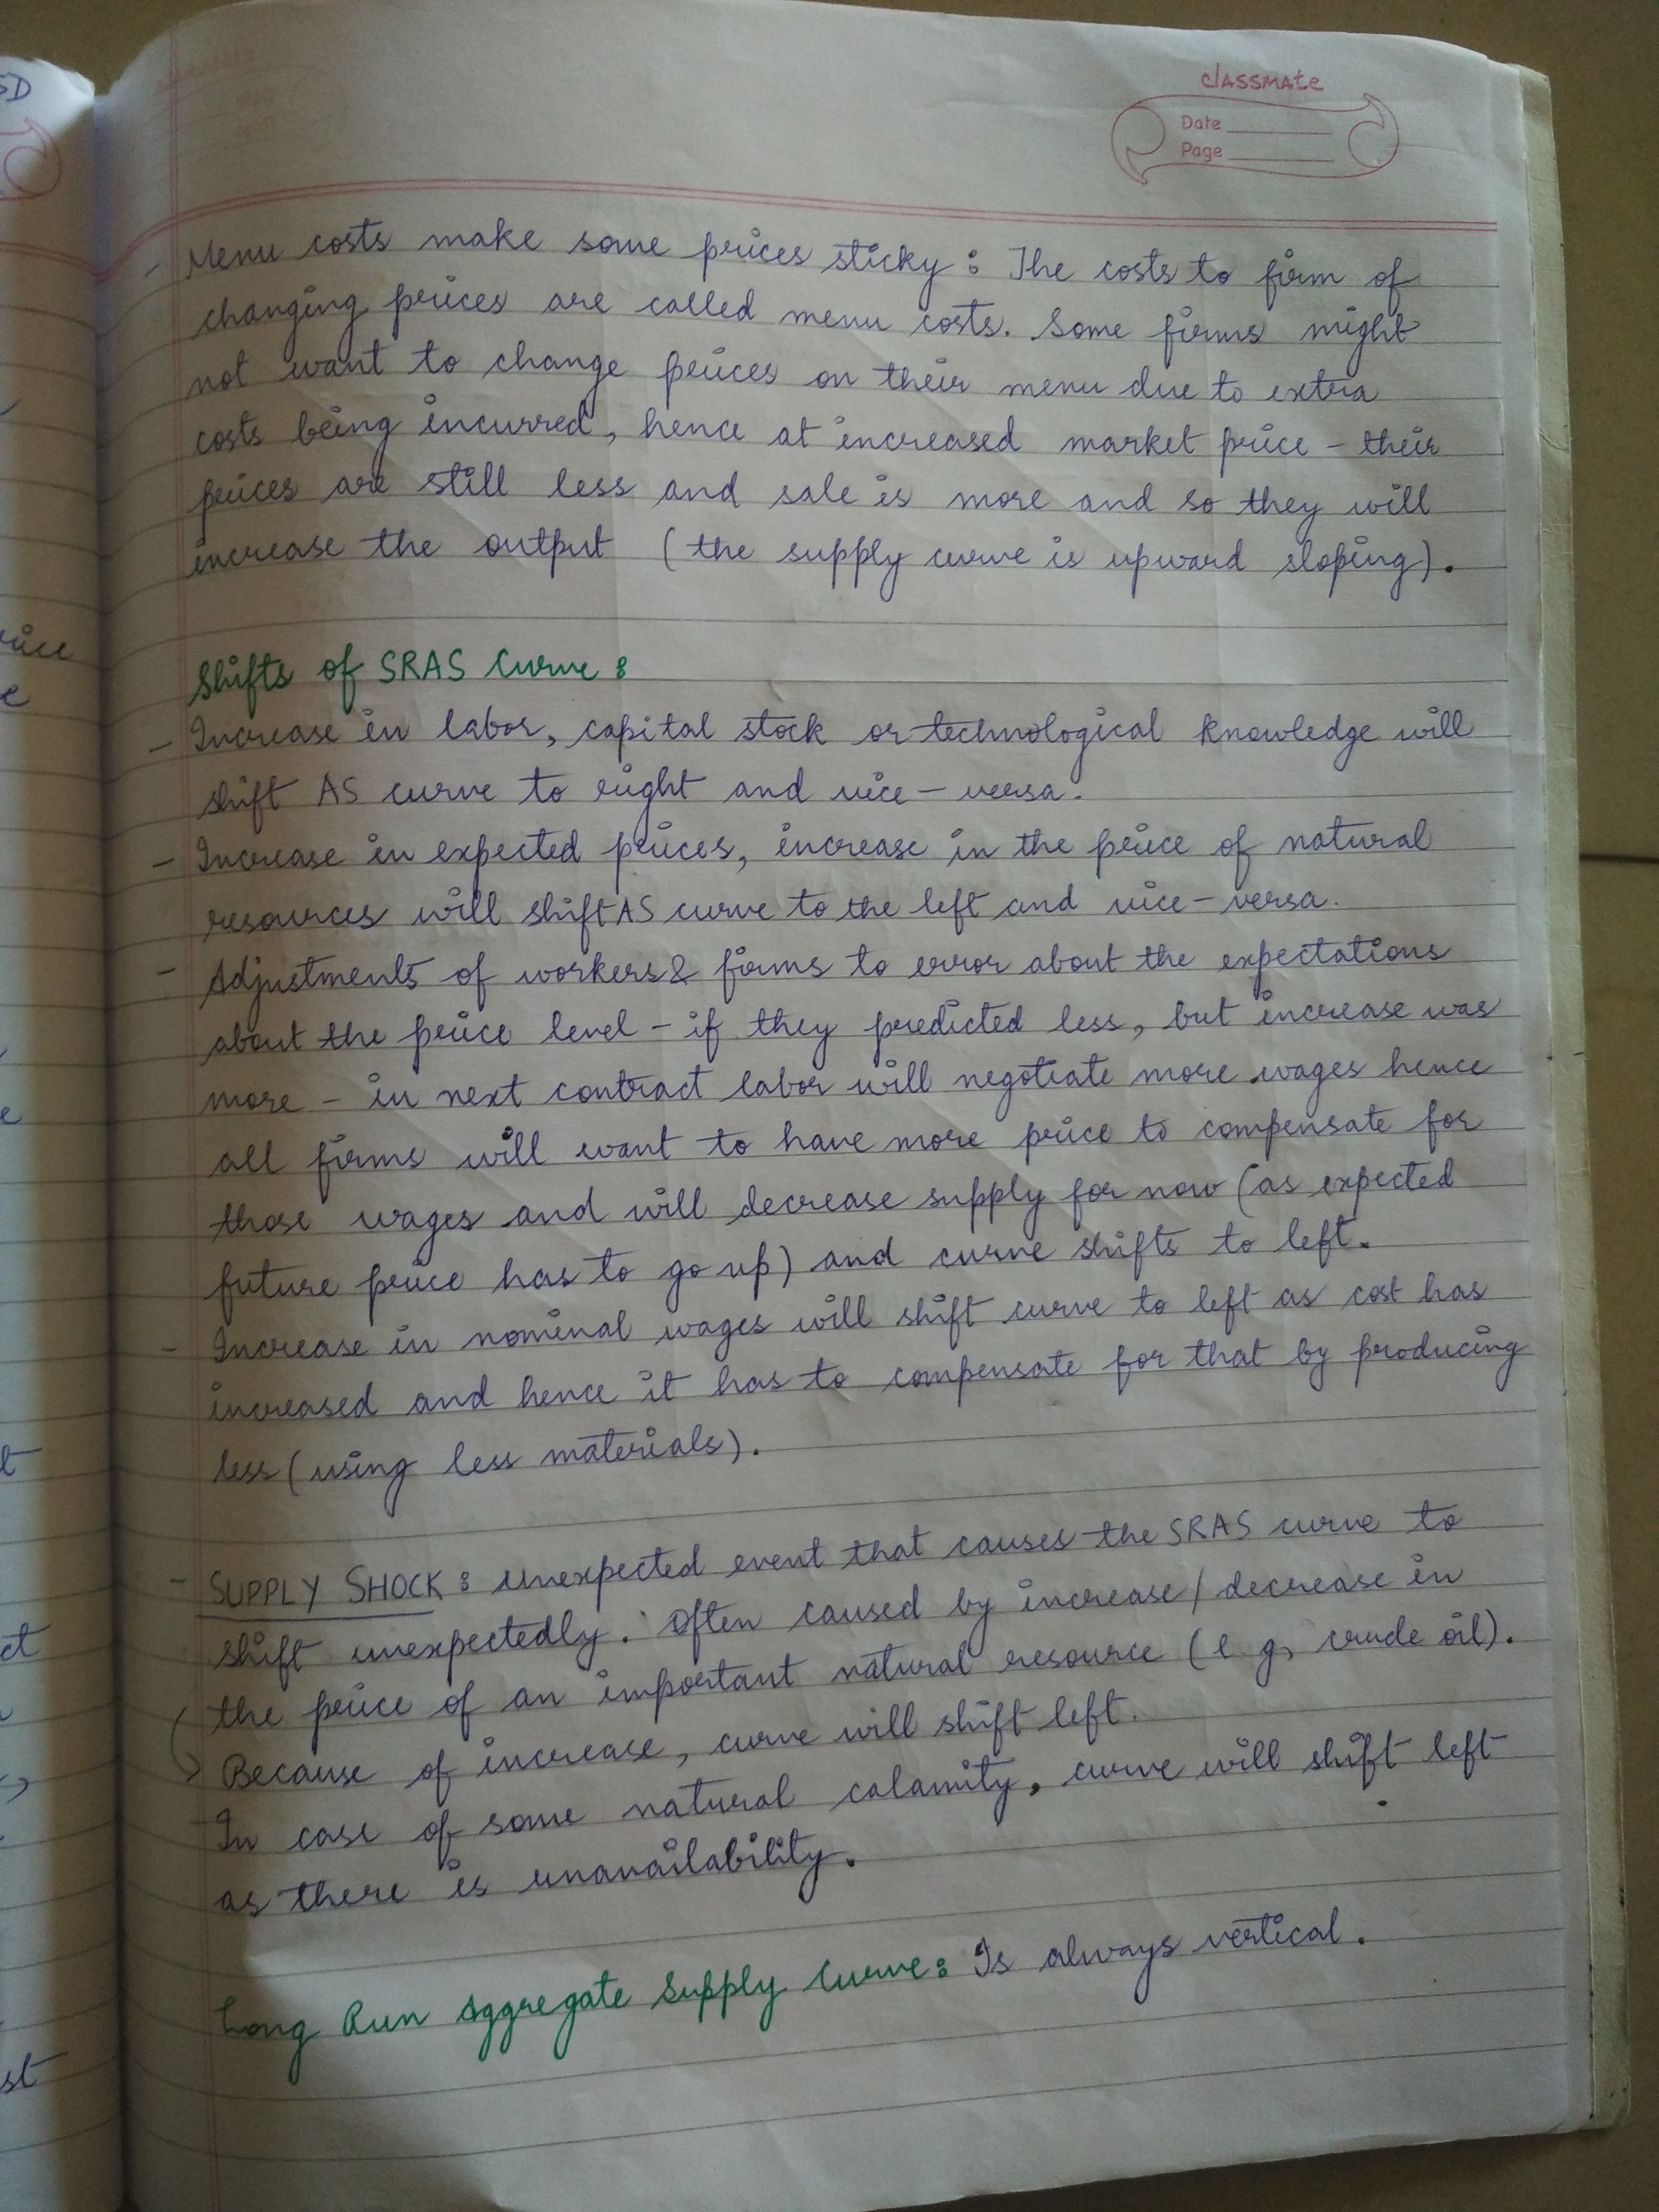 classmate
Date
Page
- Menu costs make some prices sticky : The costs to firm of
changing prices are called menu costs. Some firms might
not want to change prices on their menu due to extra
costs being incurred, hence at increased market price - their
prices are still less and sale is more and so they will
increase the output (the supply curve is upward sloping).
Shifts of SRAS Curve :
- Increase in labor, capital stock or technological knowledge will
shift AS curve to right and vice - versa.
- Increase in expected prices, increase in the price of natural
resources will shift AS curve to the left and vice - versa.
- Adjustments of workers & firms to error about the expectations
about the price level - if they predicted less, but increase was
more - in next contract labor will negotiate more wages hence
all firms will want to have more price to compensate for
those wages and will decrease supply for now (as expected
future price has to go up) and curve shifts to left.
- Increase in nominal wages will shift curve to left as cost has
increased and hence it has to compensate for that by producing
less (using less materials).
- SUPPLY SHOCK : unexpected event that causes the SRAS curve to
shift unexpectedly. Often caused by increase / decrease in
the price of an important natural resource (e.g, crude oil).
Because of increase, curve will shift left.
- In case of some natural calamity, curve will shift left
as there is unavailability.
Long Run Aggregate Supply Curve : Is always vertical.